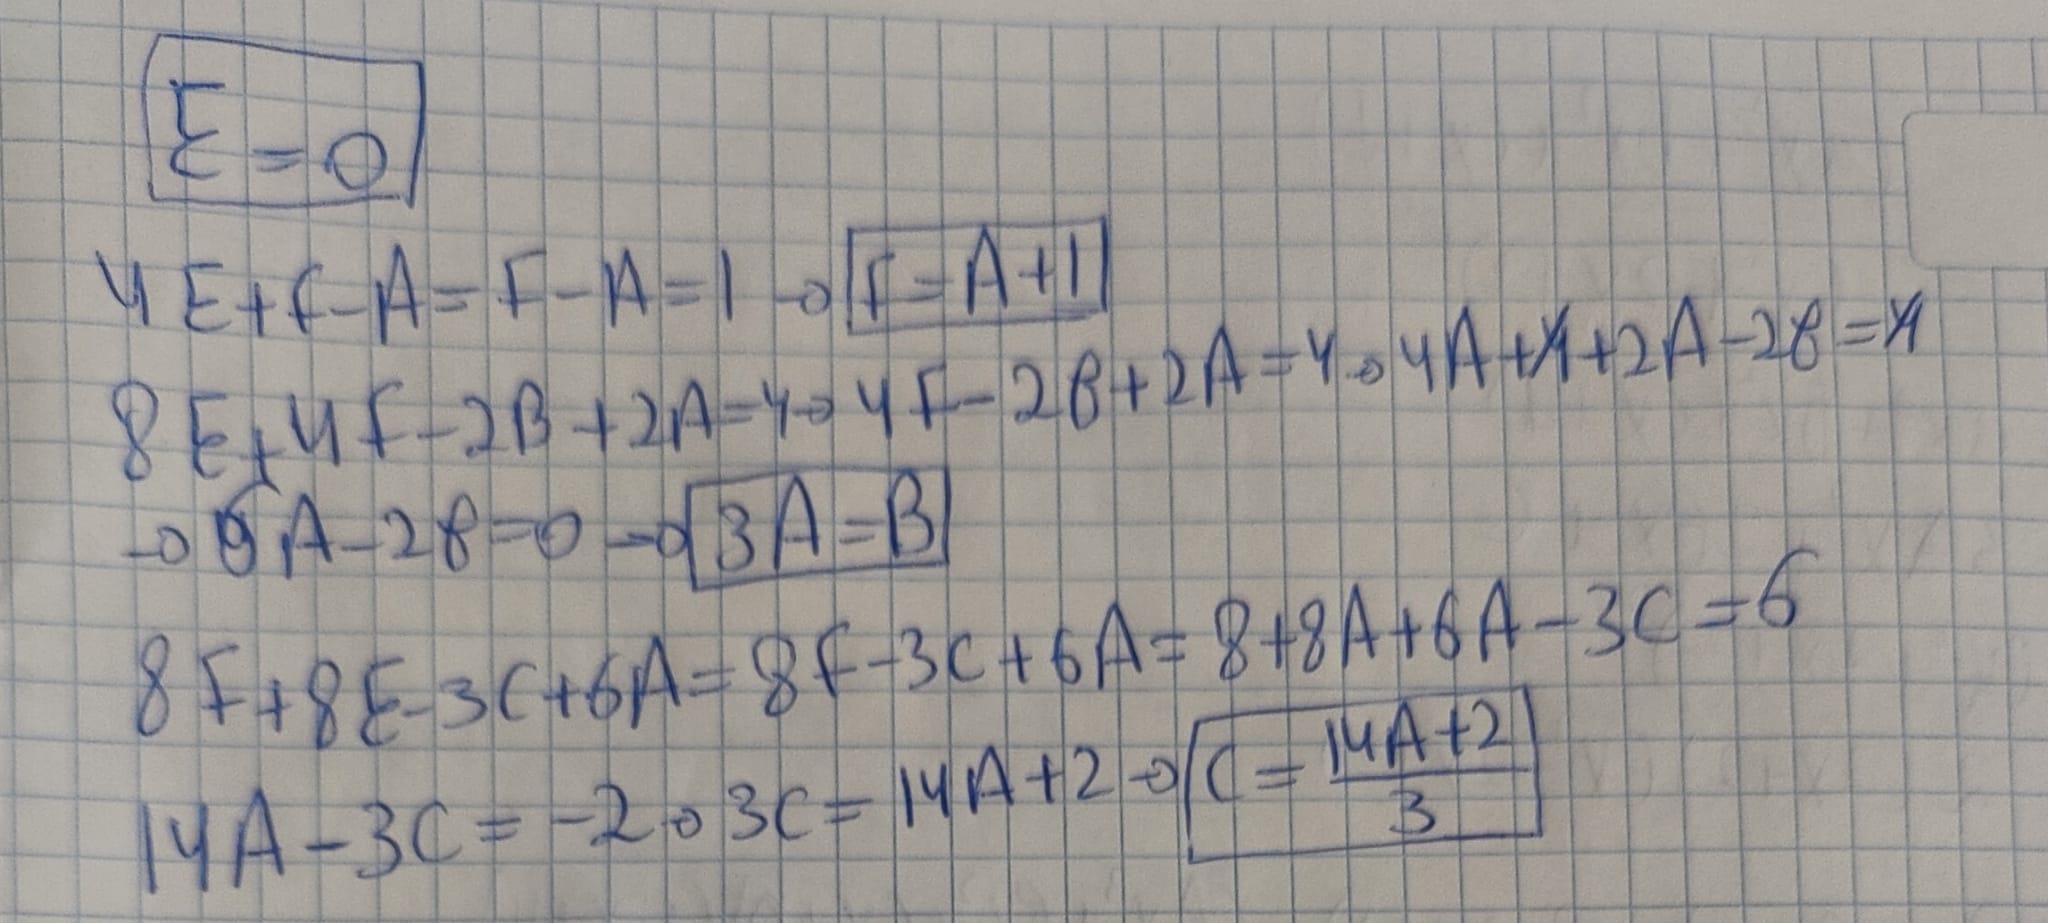 E=0
4E+F-A=F-A=1 → F=A+1
8E+4F-2B+2A=4→4F-2B+2A=4→4A+4+2A-2B=4
→6A-2B=0→3A=B
8F+8E-3C+6A=8F-3C+6A=8+8A+6A-3C=6
14A-3C=-2→3C=14A+2→C=\frac{14A+2}{3}